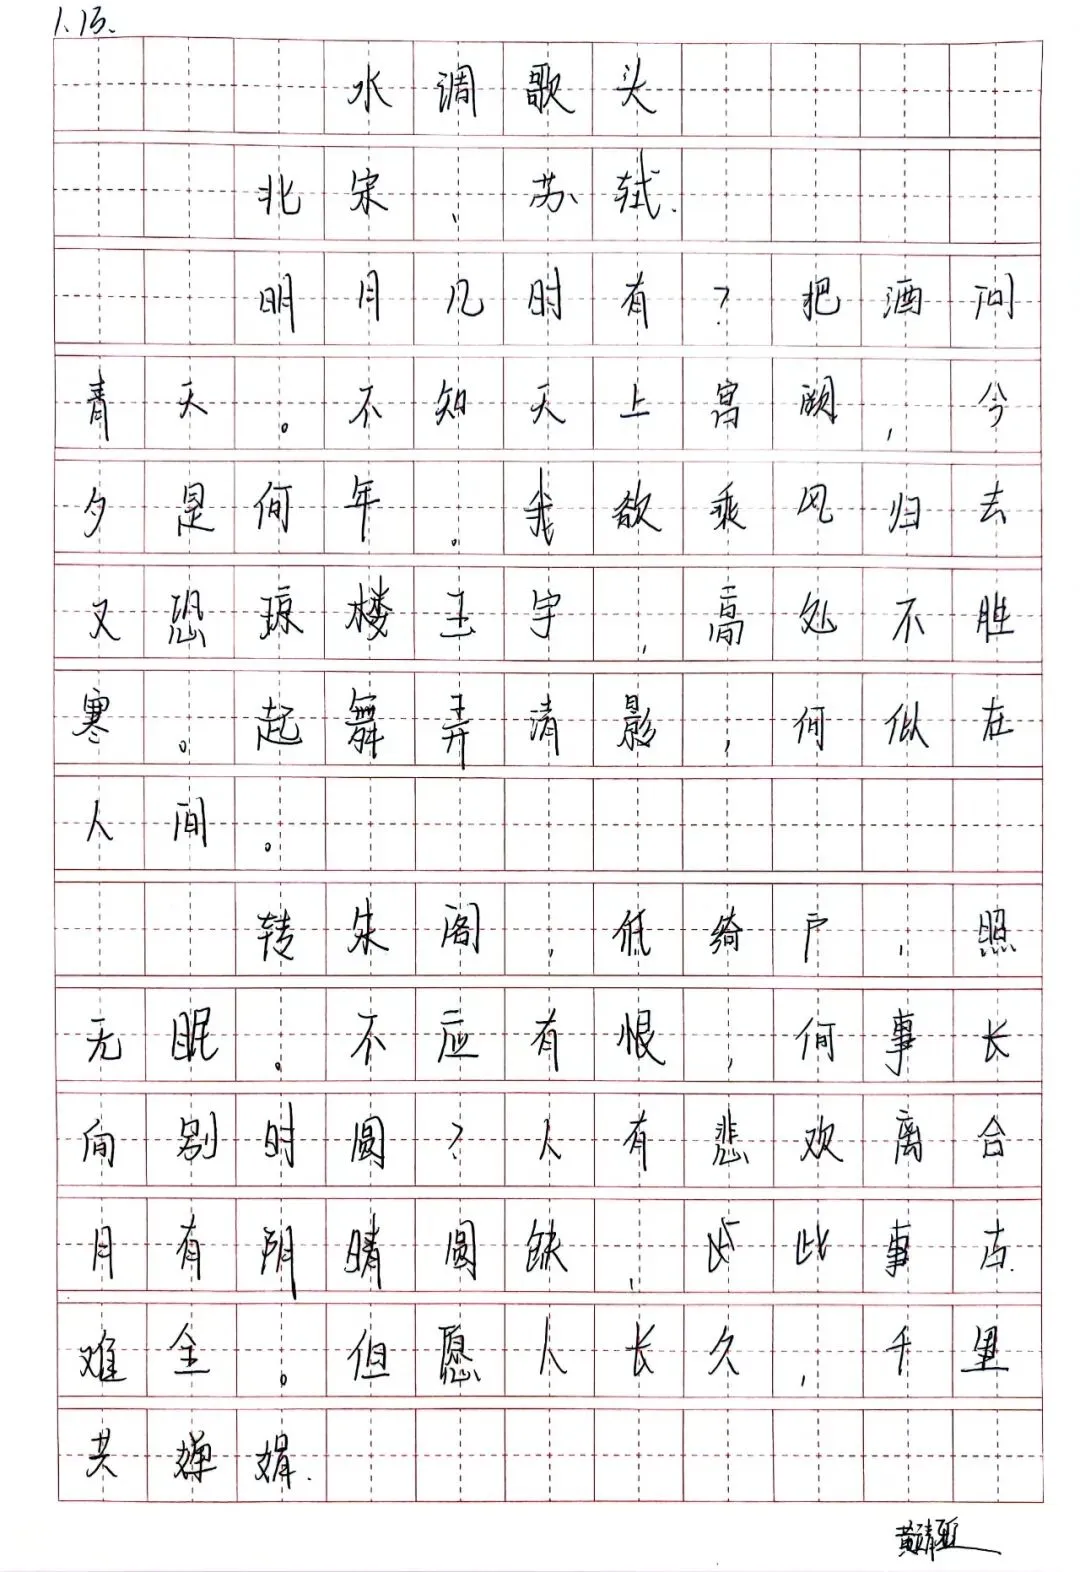 1.15.
水调歌头
北宋、苏轼.
明月几时有？把酒问
青天。不知天上宫阙，今
夕是何年。我欲乘风归去
又恐琼楼玉宇，高处不胜
寒。起舞弄清影，何似在
人间。
转朱阁，低绮户，照
无眠。不应有恨，何事长
向别时圆？人有悲欢离合
月有阴晴圆缺，此事古.
难全。但愿人长久，千里
共婵娟.